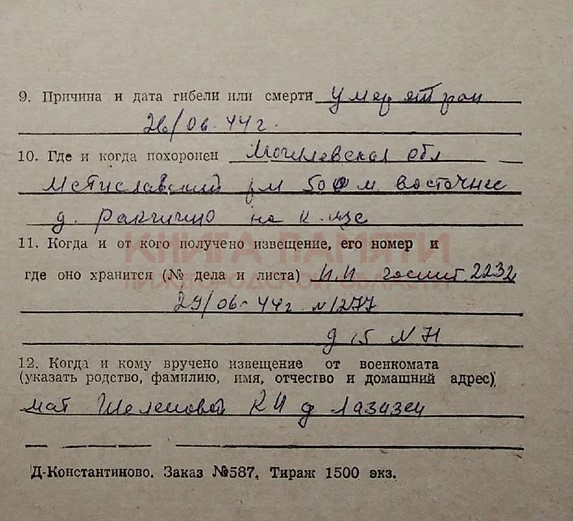 9. Причина и дата гибели или смерти умер от ран
26/06-44 г.
10. Где и когда похоронен Могилевская обл
Мстиславский 500 м восточнее
д. на
11. Когда и от кого получено извещение, его номер и
КНИГА ПАМЯТИ
где оно хранится (№ дела и листа) госпит 2232
НИЖЕГОРОДСКОЙ ОБЛАСТИ
29/06-44 г. N1277
д 15 N 71
12. Когда и кому вручено извещение от военкомата
(указать родство, фамилию, имя, отчество и домашний адрес)
мат Шелеповой К И д
Д-Константиново. Заказ №587. Тираж 1500 экз.